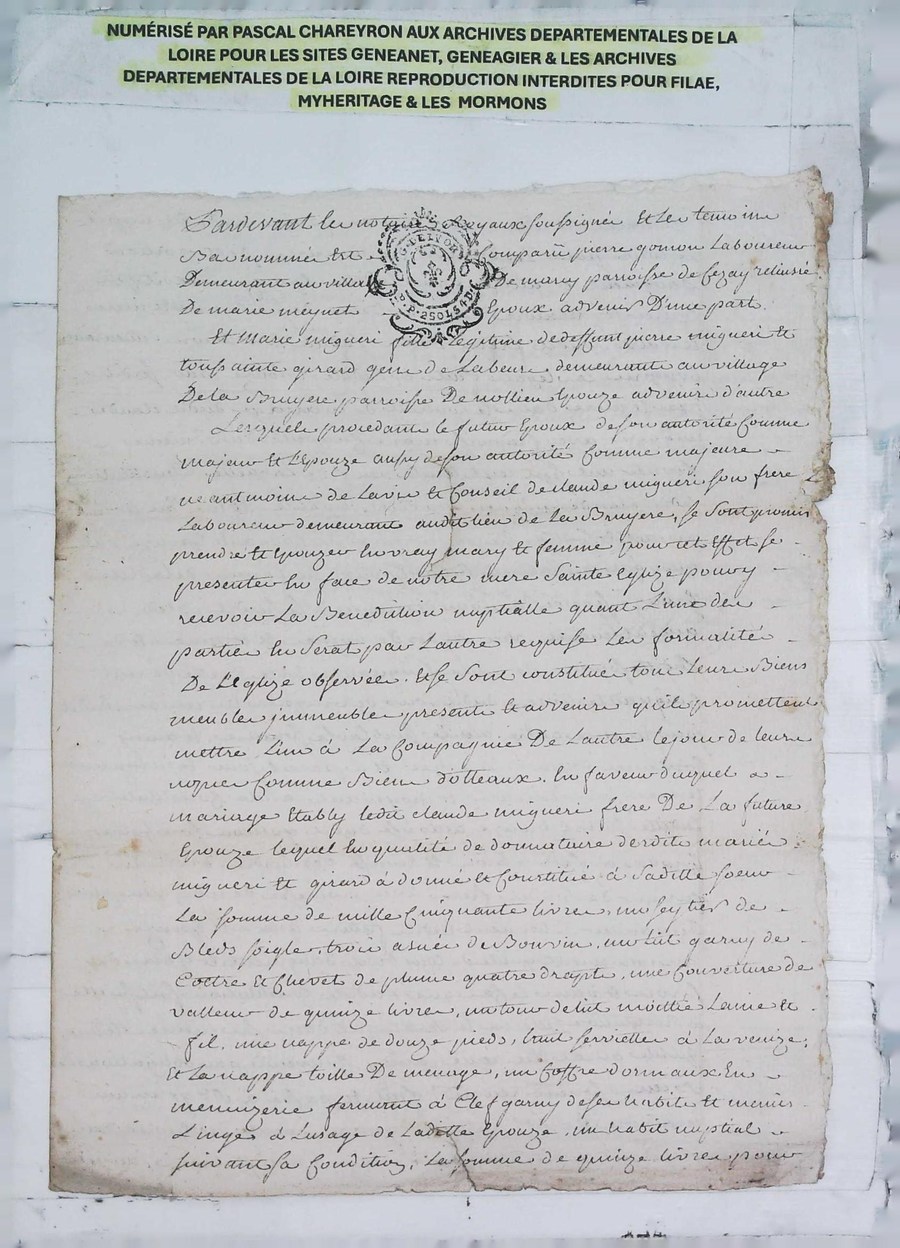 NUMÉRISÉ PAR PASCAL CHAREYRON AUX ARCHIVES DEPARTEMENTALES DE LA
LOIRE POUR LES SITES GENEANET, GENEAGIER & LES ARCHIVES
DEPARTEMENTALES DE LA LOIRE REPRODUCTION INTERDITES POUR FILAE,
MYHERITAGE & LES MORMONS
Pardevant les notaires Royaux soussignés Et les temoins
Bas nommés Est Comparu pierre gonon Laboureur
Demeurant au villa De marcy parroisse de Cezay
De marie meynet Epoux advenir D'une part
Et Marie migueri fille Legitime de deffunt pierre migueri et
toussainte girard gens de Labeure demeurante au village
De la Bruyere parroisse De nollieu Epouze advenir d'autre
Lesquels procedant le futur Epoux de son autorité Comme
majeur Et L'Epouze aussy de son autorité Comme majeure
neantmoins de Lavis et Conseil de claude migueri son frere
Laboureur demeurant audit lieu de La Bruyere, se sont promis
prendre Et Epouzer En vray mary et femme pour cet Effet se
presenter En face de notre mere Sainte Eglize pour y
recevoir La Benediction nuptialle quant L'une des
parties En Serat par Lautre requise Les formalités
De L'Eglize observées. Et se Sont constitués tous Leurs Biens
meubles immeubles presents Et advenirs qu'ils promettent
mettre L'un à La Compagnie De Lautre le jour de leurs
nopces Comme Biens dotteaux. En faveur duquel
mariage Etably ledit claude migueri frere De La future
Epouze lequel En qualité de donnataire desdits mariés
migueri et girard à donné et Constitué à Saditte soeur
La somme de mille Cinquante livres, un seytier de
Bleds seigle, trois asnées de Bon vin, un Lit garny de
Coitre Et Chevet de plume quatre drapts, une Couverture de
valleur de quinze livres, un tour de lit moittié Laine et
fil, une nappe de douze pieds, huit serviettes à La venize,
Et La nappe toille De menage, un Coffre d'ormaux En
menuizerie fermant à Clef garny de ses habits et menus
Linges à L'usage de Laditte Epouze, un habit nuptial
suivant sa Condition, La somme de quinze livres pour